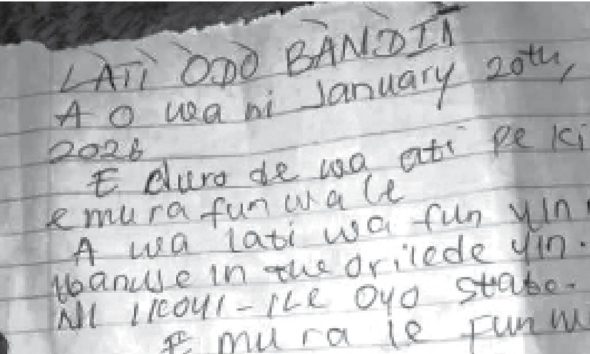 LATI ODO BANDIT
A O wa ni January 20th,
2026
E duro de wa ati pe ki
e mura fun wa le
A wa lati wa fun yin
in the orilede yin.
NI IKOYI-ILE OYO state.
E mu ra le fun w